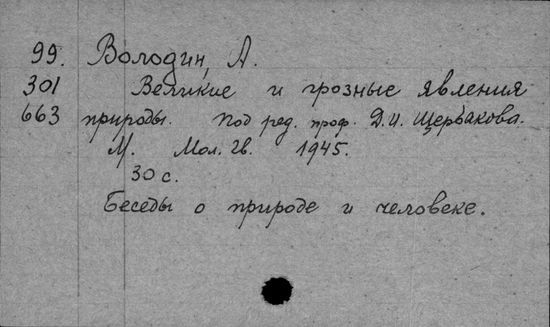 99. Володин, А.
301 Великие и грозные явления
663 природы. Под ред. проф. Д.И. Щербакова.
М. Мол. гв. 1945.
30 с.
Беседы о природе и человеке.